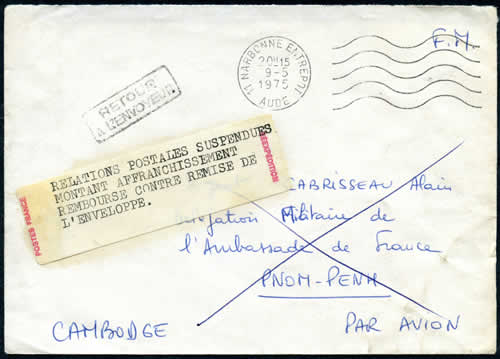 F.M.
11 NARBONNE ENTREPOT
20H15
9-5
1975
AUDE
RETOUR
A L'ENVOYEUR
RELATIONS POSTALES SUSPENDUES
MONTANT AFFRANCHISSEMENT
REMBOURSE CONTRE REMISE DE
L'ENVELOPPE.
POSTES FRANCE
CABRISSEAU Alain
Militaire de
l'Ambassade de France
PNOM-PENH
CAMBODGE
PAR AVION